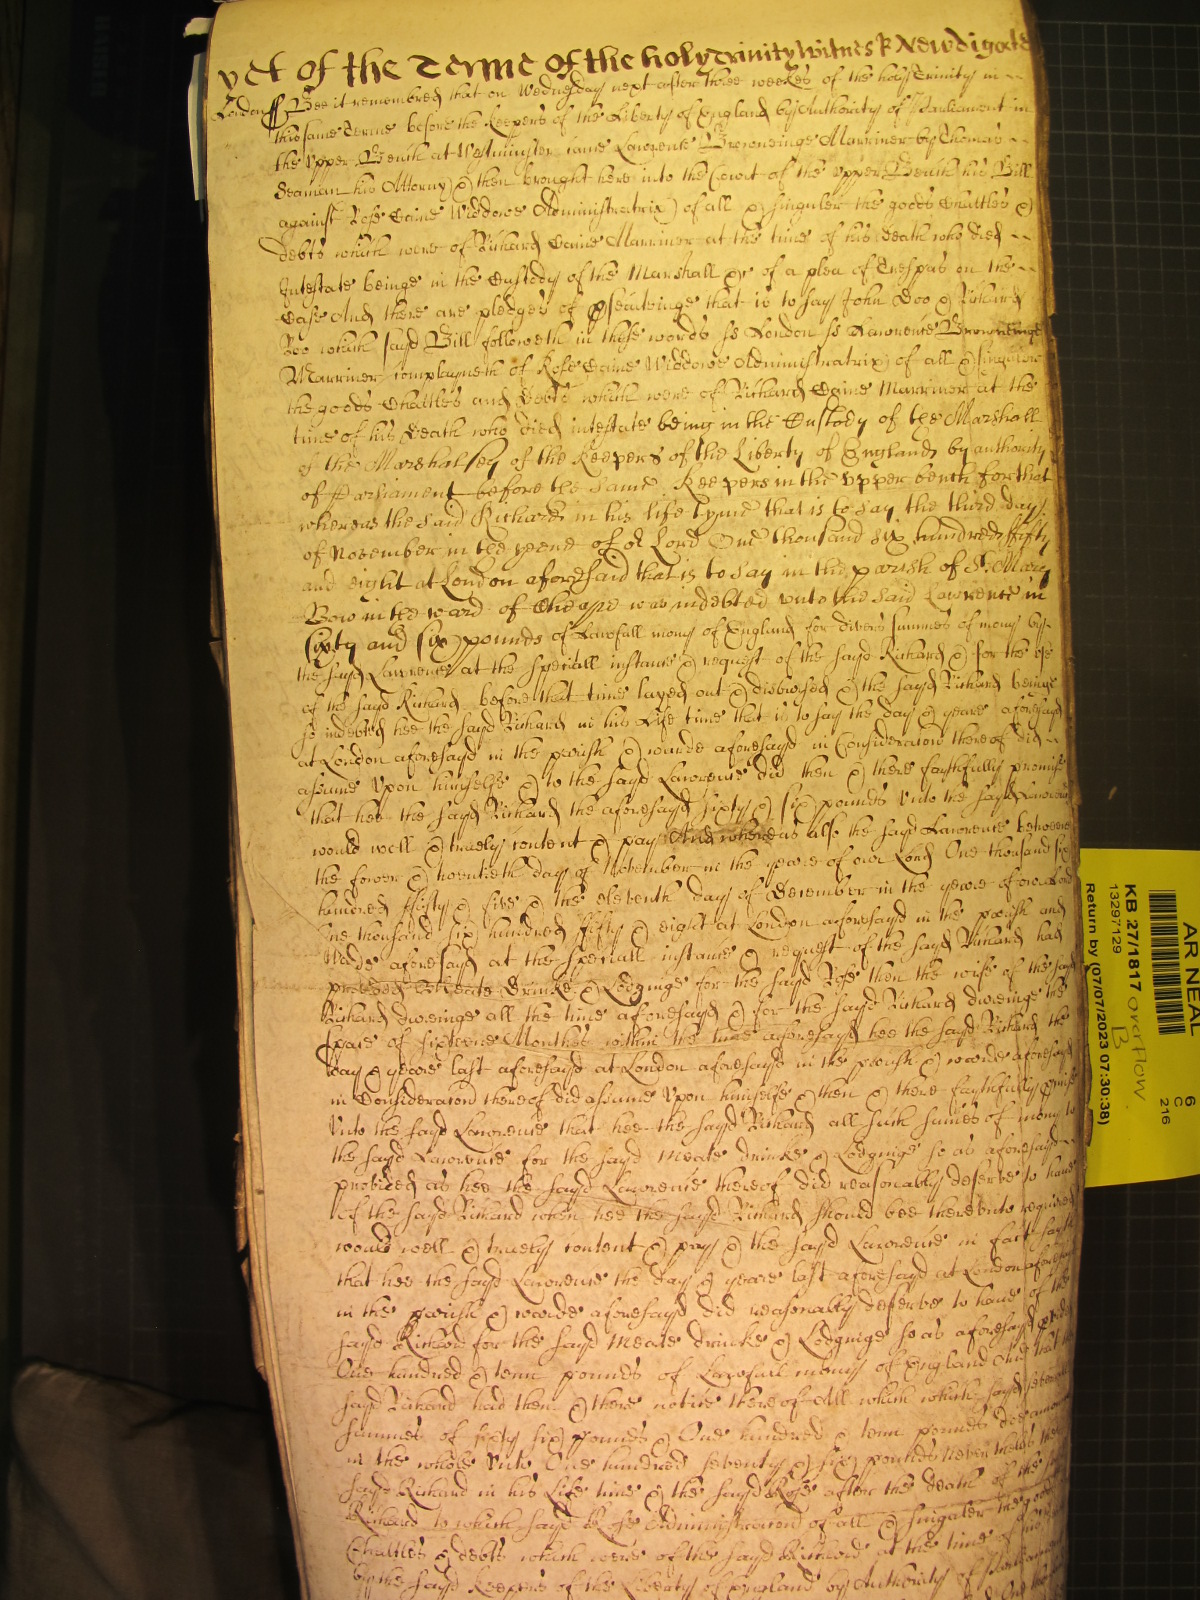 yet of the Terme of the holy Trinity Witnes R Newdigate
London ss Bee it remembred that on Wednesday next after three weekes of the holy Trinity in
this same Terme before the Keepers of the Liberty of England by Authority of Parliament in
the Upper Bench at Westminster came Lawrence Browneinge Marriner by Thomas
Seaman his Attorny & then brought here into the Court of the upper Bench his Bill
against Rose Caine Widdowe Administratrix of all & singuler the goods Chattles &
debts which were of Richard Caine Marriner at the time of his death who died
Intestate beinge in the Custody of the Marshall &c of a plea of Trespas on the
Case And there are pledges of psecuteinge that is to say John Doo & Richard
Roo which sayd Bill followeth in these words ss London ss Lawrence Browneinge
Marriner complayneth of Rose Caine Widdowe Administratrix of all & singuler
the goods Chattles and Debts which were of Richard Caine Marriner at the
time of his Death who died intestate being in the Custody of the Marshall
of the Marshalsey of the Keepers of the Liberty of England by authority
of Parliament before the same Keepers in the upper bench for that
whereas the said Richard in his life tyme that is to say the third day
of November in the yeare of or Lord One thousand six hundred fifty
and eight at London aforesaid that is to say in the parish of St Mary
Bow in the ward of Cheape was indebted unto the said Lawrence in
sixty and six pounds of Lawfull mony of England for divers summes of mony by
the sayd Lawrence at the speciall instance & request of the sayd Richard & for the use
of the sayd Richard before that time layed out & disbursed & the sayd Richard beinge
so indebted hee the sayd Richard in his Life time that is to say the day & yeare aforesayd
at London aforesayd in the parish & warde aforesayd in Consideracion thereof did
assume upon himselfe & to the sayd Lawrence did then & there faythfully promise
that hee the sayd Richard the aforesayd sixty & six pounds unto the sayd Lawrence
would well & truely content & pay And whereas also the sayd Lawrence betweene
the fower & twentieth day of November in the yeare of our Lord One thousand six
hundred fifty & five & the eleventh day of December in the yeare of our Lord
One thousand six hundred fifty & eight at London aforesayd in the parish and
Warde aforesayd at the speciall instance & request of the sayd Richard had
provided Meate Drinke & Lodginge for the sayd Rose then the wife of the sayd
Richard dureinge all the time aforesayd & for the sayd Richard dureinge the
space of sixteene Monthes within the time aforesayd hee the sayd Richard the
day & yeare last aforesayd at London aforesayd in the parish & warde aforesayd
in Consideracion thereof did assume upon himselfe & then & there faythfully pmise
unto the sayd Lawrence that hee the sayd Richard all such summes of mony to
the sayd Lawrence for the sayd Meate drinke & Lodginge so as aforesayd
provided as hee the sayd Lawrence thereof did reasonably deserve to have
of the sayd Richard when hee the sayd Richard should bee thereunto required
would well & truely content & pay & the sayd Lawrence in fact sayth
that hee the sayd Lawrence the day & yeare last aforesayd at London aforesayd
in the parish & warde aforesayd did reasonably deserve to have of the
sayd Richard for the sayd Meate drinke & Lodginge so as aforesayd
One hundred & tenn pounds of Lawfull mony of England And that the
sayd Richard had then & there notice thereof All which which sayd severall
summes of sixty six pounds & One hundred & tenn pounds doe amount
in the whole unto One hundred seventy & six pounds neverthelesse the
sayd Richard in his Life time & the sayd Rose after the death of the
Richard to which sayd Rose Administracion of all & singuler the goods
Chattles & debts which were of the sayd Richard at the time of his
by the sayd Keepers of the Liberty of England by Authority of Parliament
AR NEAL
6
C
216
KB 27/1817 overflow
B
13297129
Return by (07/07/2023 07:30:38)